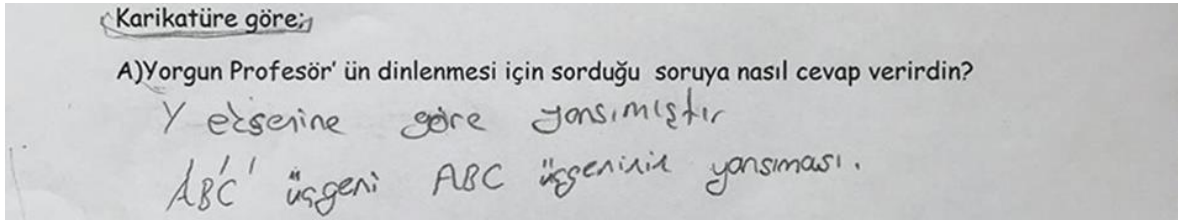 Karikatüre göre;
A)Yorgun Profesör' ün dinlenmesi için sorduğu soruya nasıl cevap verirdin?
Y eksenine göre yansımıştır
A'B'C' üçgeni ABC üçgeninin yansıması.